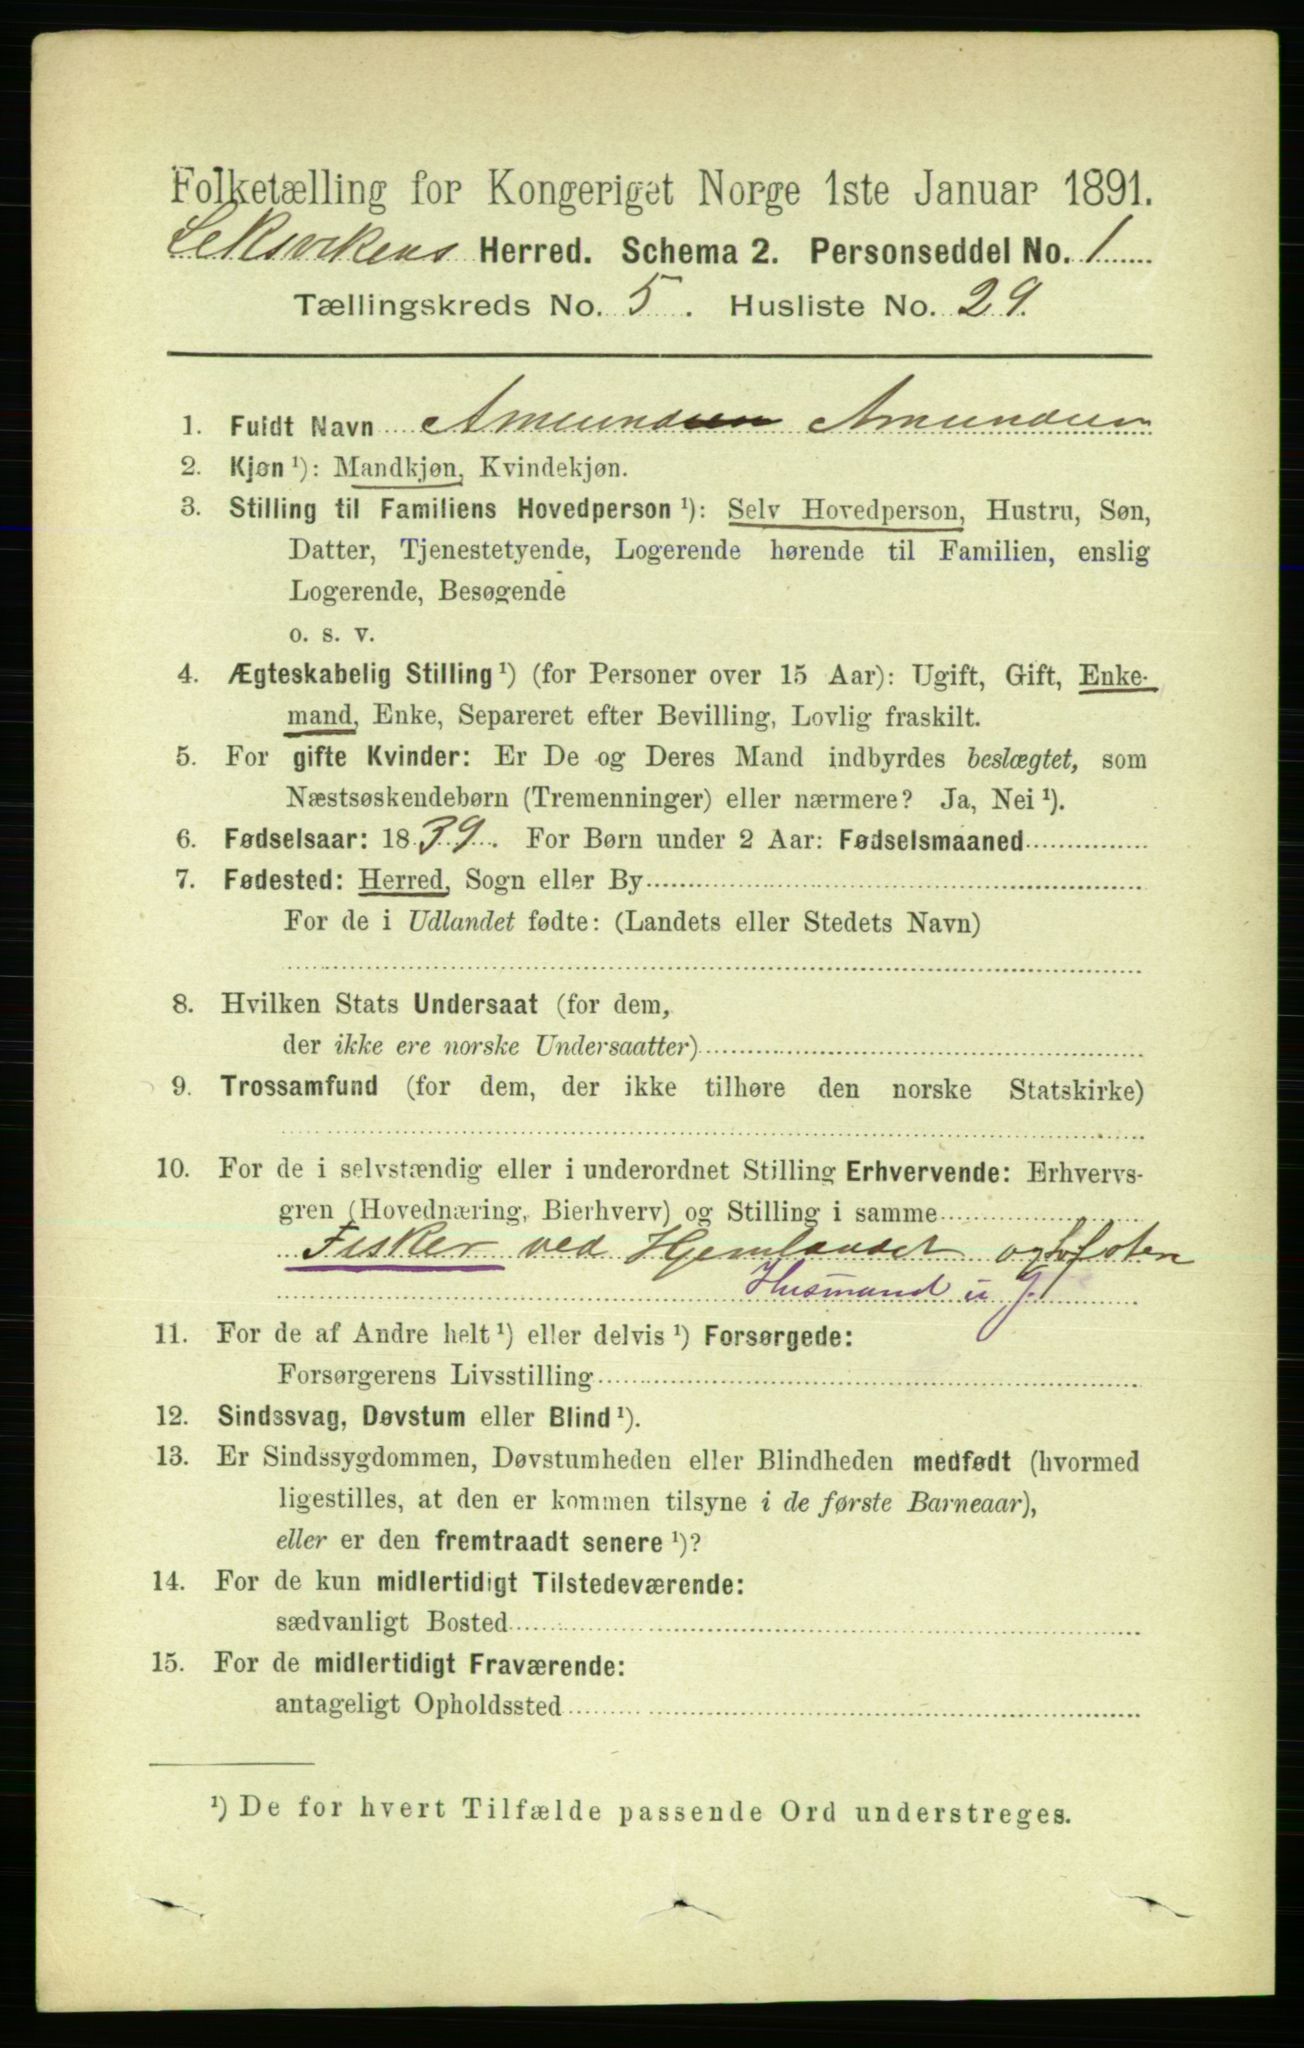 Folketælling for Kongeriget Norge 1ste Januar 1891.
Leksvikens Herred. Schema 2. Personseddel No. 1
Tællingskreds No. 5. Husliste No. 29.
1. Fuldt Navn Amund Amundsen
2. Kjøn ¹): Mandkjøn, Kvindekjøn.
3. Stilling til Familiens Hovedperson ¹): Selv Hovedperson, Hustru, Søn,
Datter, Tjenestetyende, Logerende hørende til Familien, enslig
Logerende, Besøgende
o. s. v.
4. Ægteskabelig Stilling ¹) (for Personer over 15 Aar): Ugift, Gift, Enke-
mand, Enke, Separeret efter Bevilling, Lovlig fraskilt.
5. For gifte Kvinder: Er De og Deres Mand indbyrdes beslægtet, som
Næstsøskendebørn (Tremenninger) eller nærmere? Ja, Nei ¹).
6. Fødselsaar: 1839. For Børn under 2 Aar: Fødselsmaaned
7. Fødested: Herred, Sogn eller By
For de i Udlandet fødte: (Landets eller Stedets Navn)
8. Hvilken Stats Undersaat (for dem,
der ikke ere norske Undersaatter)
9. Trossamfund (for dem, der ikke tilhøre den norske Statskirke)
10. For de i selvstændig eller i underordnet Stilling Erhvervende: Erhvervs-
gren (Hovednæring, Bierhverv) og Stilling i samme
Fisker ved Hjemlandet og
Husmand u J.
11. For de af Andre helt ¹) eller delvis ¹) Forsørgede:
Forsørgerens Livsstilling
12. Sindssvag, Døvstum eller Blind ¹).
13. Er Sindssygdommen, Døvstumheden eller Blindheden medfødt (hvormed
ligestilles, at den er kommen tilsyne i de første Barneaar),
eller er den fremtraadt senere ¹)?
14. For de kun midlertidigt Tilstedeværende:
sædvanligt Bosted
15. For de midlertidigt Fraværende:
antageligt Opholdssted
¹) De for hvert Tilfælde passende Ord understreges.